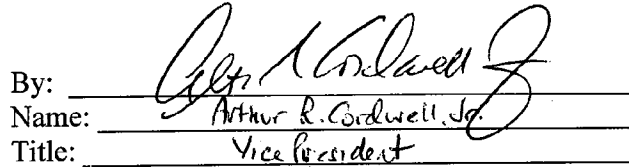 By: Arthur R Cordwell Jr
Name: Arthur R. Cordwell, Jr.
Title: Vice President